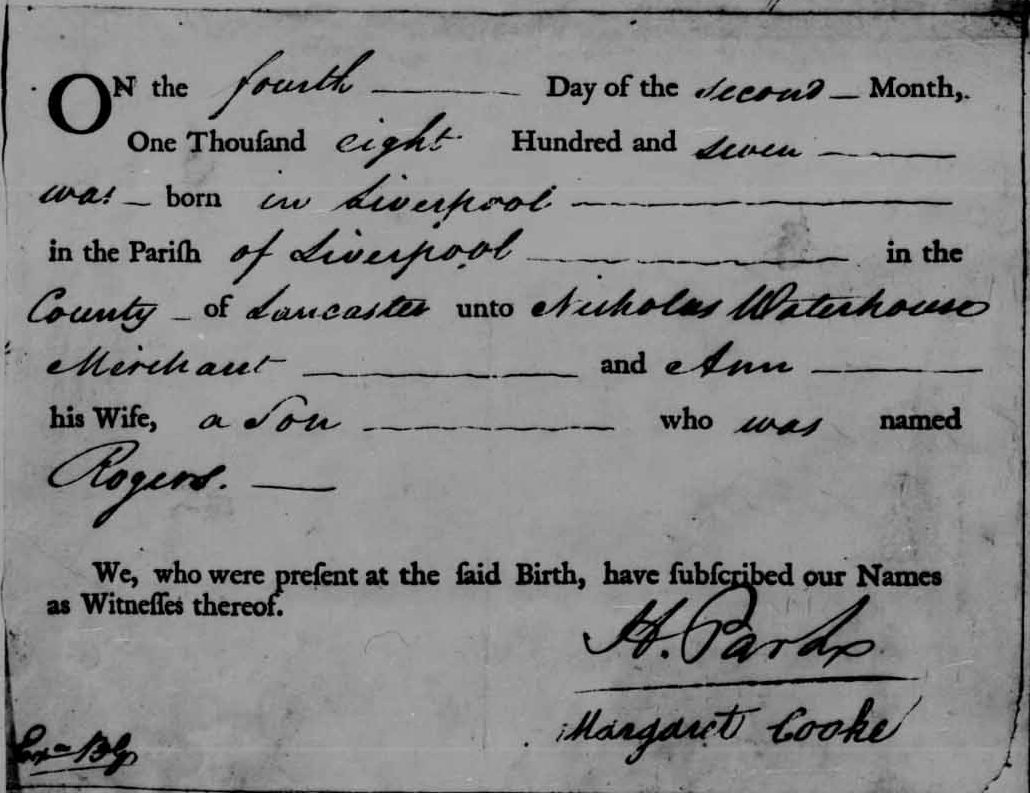 ON the fourth Day of the second Month,
One Thouſand eight Hundred and seven
was born in Liverpool
in the Pariſh of Liverpool in the
County of Lancaster unto Nicholas Waterhouse
Merchant and Ann
his Wife, a Son who was named
Rogers.
We, who were preſent at the ſaid Birth, have ſubſcribed our Names
as Witneſſes thereof.
H. Parks
Margaret Cooke